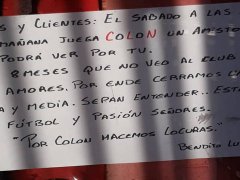 S Y CLIENTES: EL SABADO A LAS
MAÑANA JUEGA COLON UN AMISTO
PODRÁ VER POR TV.
8 MESES QUE NO VEO AL CLUB
AMORES. POR ENDE CERRAMOS
Y MEDIA. SEPÁN ENTENDER.. ES
FÚTBOL Y PASIÓN SEÑORES.
"POR COLON HACEMOS LOCURAS."
BENDITO LU